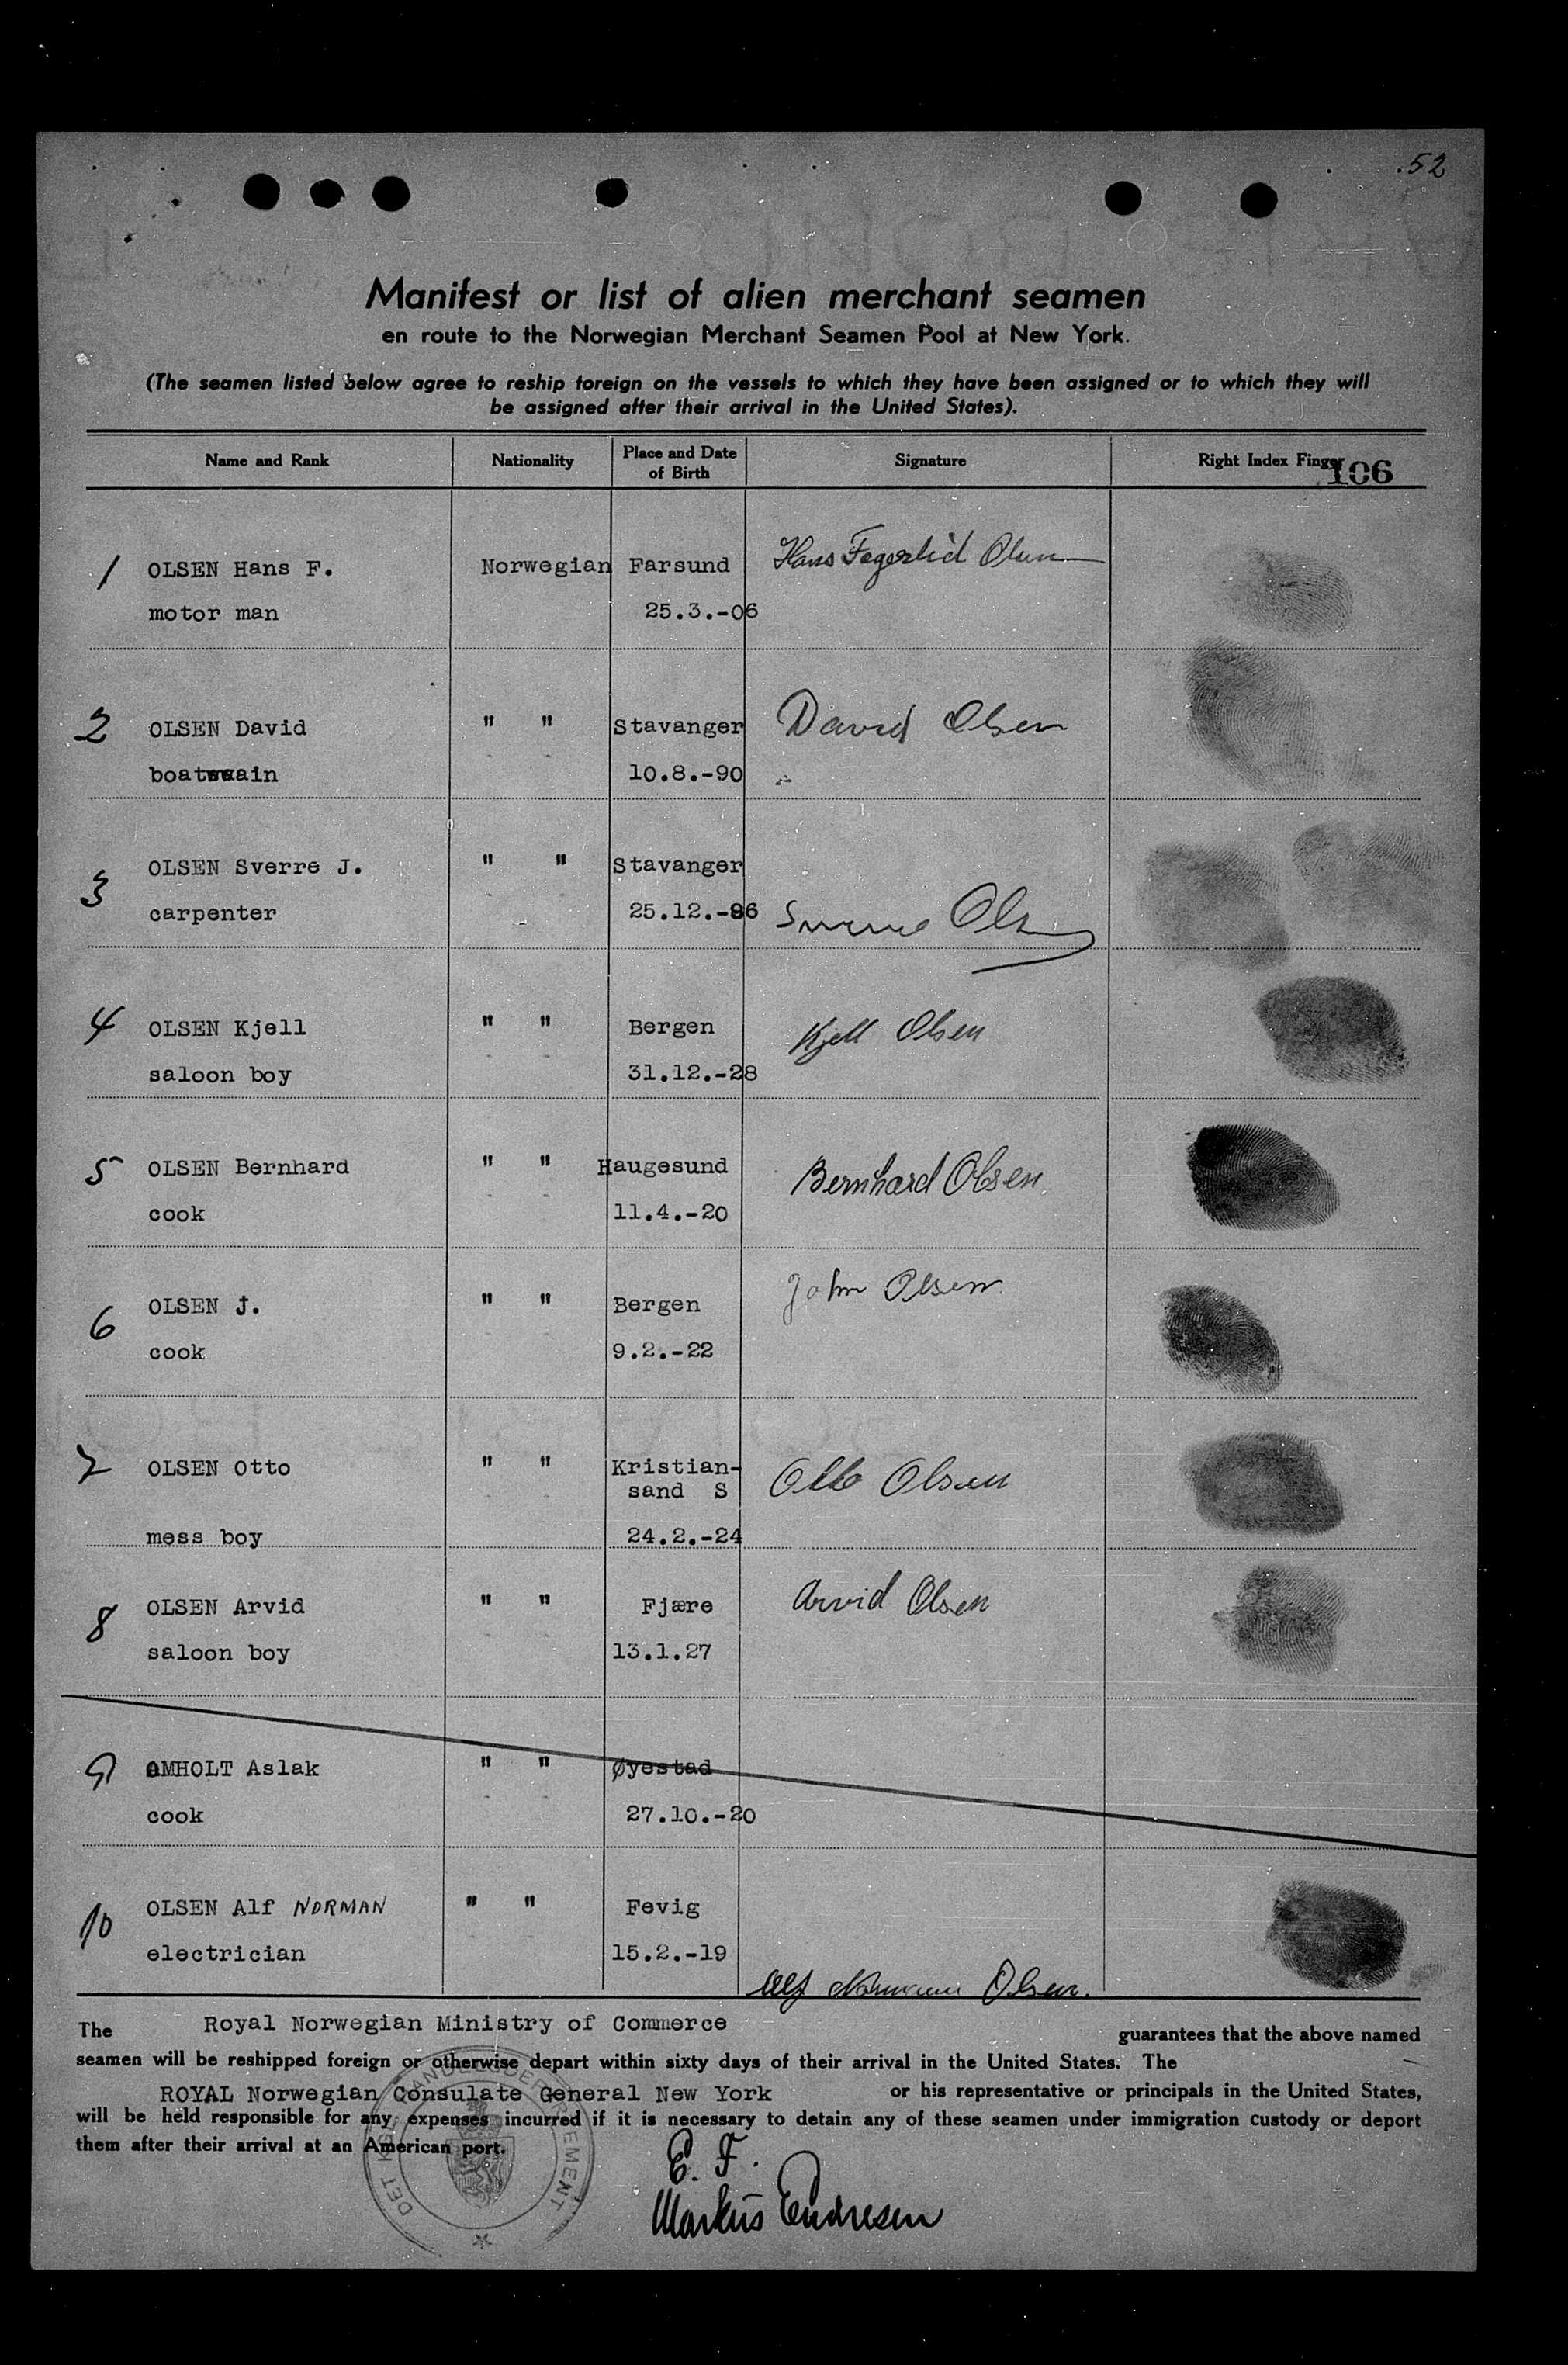 .52
Manifest or list of alien merchant seamen
en route to the Norwegian Merchant Seamen Pool at New York.
(The seamen listed below agree to reship foreign on the vessels to which they have been assigned or to which they will
be assigned after their arrival in the United States).
Name and Rank Nationality Place and Date of Birth Signature Right Index Finger
106
1 OLSEN Hans F. Norwegian Farsund Hans Fegerlid Olsen
motor man 25.3.-06
2 OLSEN David " " Stavanger David Olsen
boatswain 10.8.-90
3 OLSEN Sverre J. " " Stavanger
carpenter 25.12.-96 Sverre Olsen
4 OLSEN Kjell " " Bergen Kjell Olsen
saloon boy 31.12.-28
5 OLSEN Bernhard " " Haugesund Bernhard Olsen
cook 11.4.-20
6 OLSEN J. " " Bergen John Olsen
cook 9.2.-22
7 OLSEN Otto " " Kristian- Otto Olsen
sand S
mess boy 24.2.-24
8 OLSEN Arvid " " Fjære Arvid Olsen
saloon boy 13.1.27
9 OMHOLT Aslak " " Øyestad
cook 27.10.-20
10 OLSEN Alf NORMAN " " Fevig
electrician 15.2.-19
Alf Normann Olsen.
The Royal Norwegian Ministry of Commerce guarantees that the above named
seamen will be reshipped foreign or otherwise depart within sixty days of their arrival in the United States. The
ROYAL Norwegian Consulate General New York or his representative or principals in the United States,
will be held responsible for any expenses incurred if it is necessary to detain any of these seamen under immigration custody or deport
them after their arrival at an American port.
E. F.
Markus Endresen